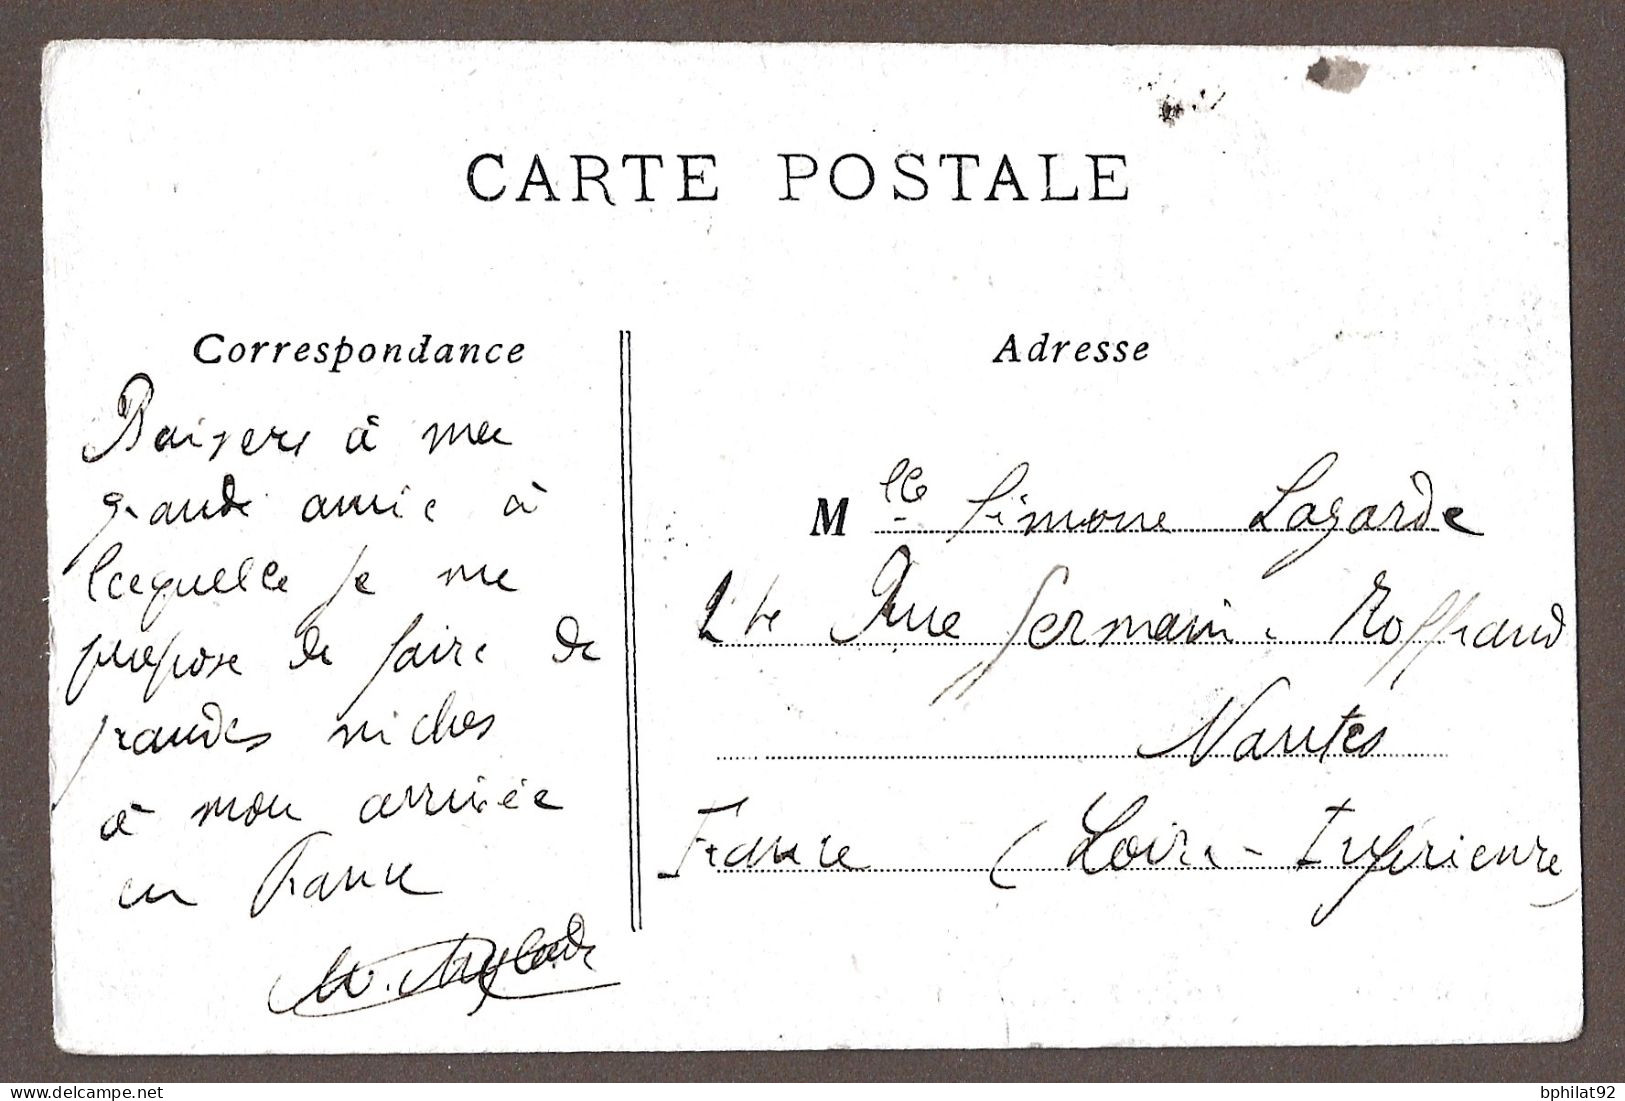 CARTE POSTALE
Correspondance
Baisers à ma
grande amie à
laquelle je me
propose de faire de
grandes niches
à mon arrivée
en France
M.
Adresse
M lle Simone Lagarde
Rue Germain
Nantes
France (Loire-Inférieure)
bphilat92